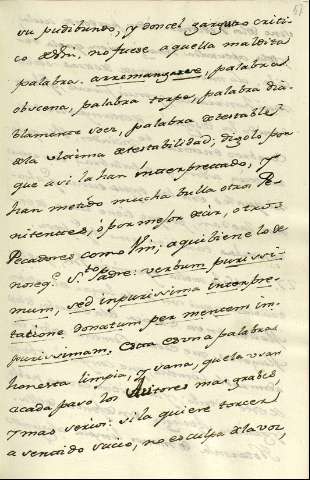 57
su pudibundo, y doncel zarguas criti-
co ddri, no fuese aquella maldita
palabra. arremangarse, palabra
obscena, palabra torpe, palabra dia-
blamente soez, palabra detestable
dela ultima detestabilidad; digolo por
que asi la han interpretado, y
han metido mucha bulla otros Pe-
nitentes, ó por mejor decir, otros
Pecadores como Vm; aqui biene lo de
no se q.e S.to Padre: verbum purissi-
mum, sed inpurissima interpre-
tatione donatum per mentem im-
purissimam. Esta es una palabra
honesta limpia, y sana, que la usan
acada paso los Autores mas grabes,
y mas serios: si la quiere torcer
a sentido sucio, no es culpa dela voz,